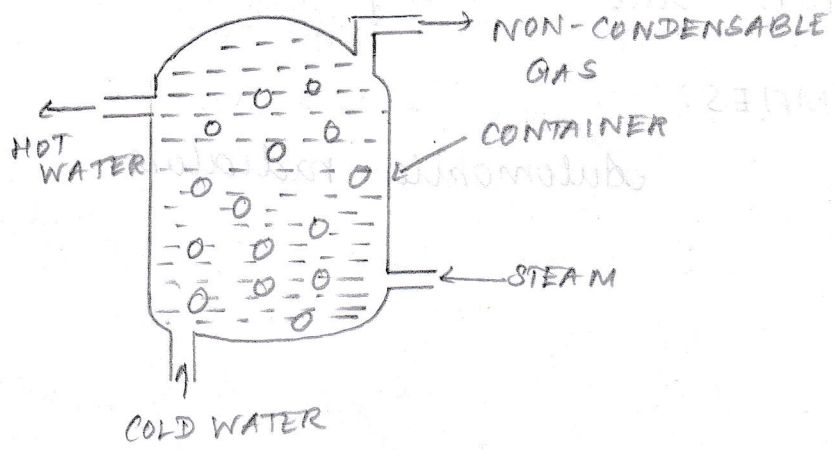 NON-CONDENSABLE
GAS
HOT
WATER
CONTAINER
STEAM
COLD WATER